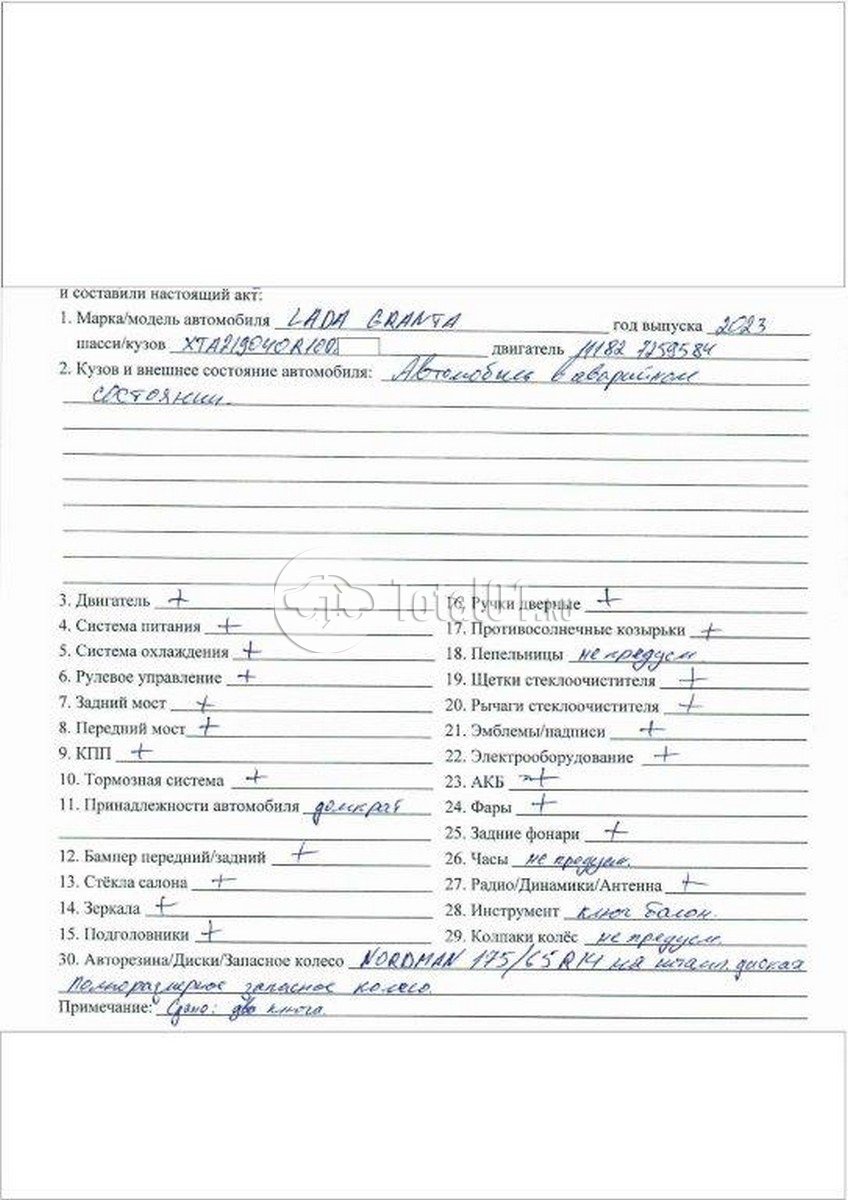 и составили настоящий акт:
1. Марка/модель автомобиля LADA GRANTA год выпуска 2023
шасси/кузов XTA219040R160 двигатель 11182 7259584
2. Кузов и внешнее состояние автомобиля: Автомобиль в аварийном
состоянии.
3. Двигатель +
4. Система питания +
5. Система охлаждения +
6. Рулевое управление +
7. Задний мост +
8. Передний мост +
9. КПП +
10. Тормозная система +
11. Принадлежности автомобиля домкрат
12. Бампер передний/задний +
13. Стёкла салона +
14. Зеркала +
15. Подголовники +
16. Ручки дверные +
17. Противосолнечные козырьки +
18. Пепельницы не предусм.
19. Щетки стеклоочистителя +
20. Рычаги стеклоочистителя +
21. Эмблемы/надписи +
22. Электрооборудование +
23. АКБ +
24. Фары +
25. Задние фонари +
26. Часы не предусм.
27. Радио/Динамики/Антенна +
28. Инструмент ключ балон.
29. Колпаки колёс не предусм.
30. Авторезина/Диски/Запасное колесо NORDMAN 175/65 R14 на штамп. дисках
полноразмерное запасное колесо.
Примечание: Сдано: два ключа.
Total01.RU